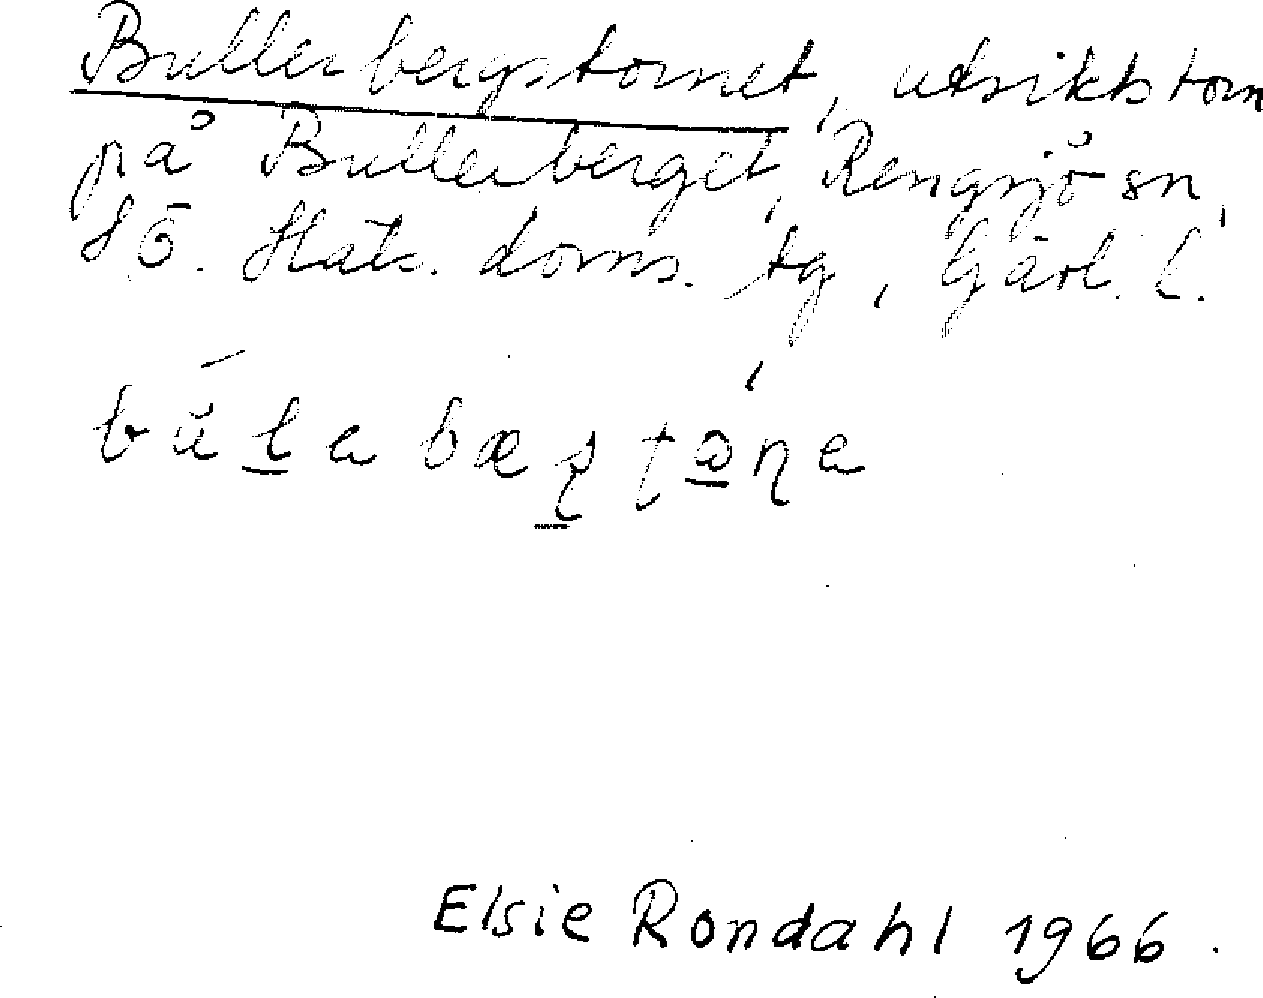 Bullerbergstornet, utsiktstorn
på Bullerberget, Rengsjö sn,
SÖ. Häls. doms. tg, Gävl. l.
Elsie Rondahl 1966.